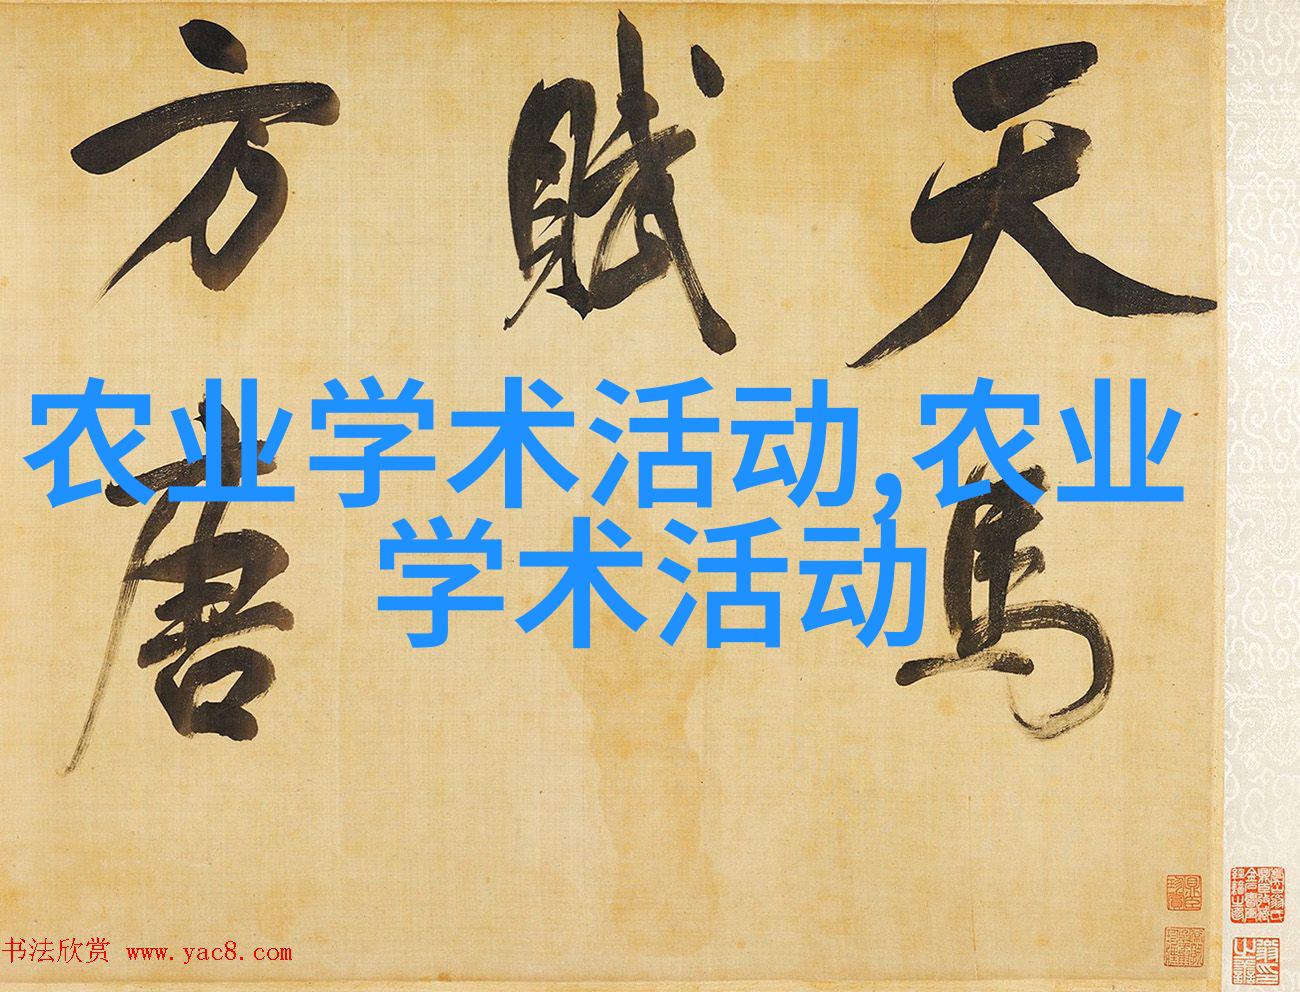 天馬
賦
方唐
农业学术活动,农业
学术活动
书法欣赏 www.yac8.com